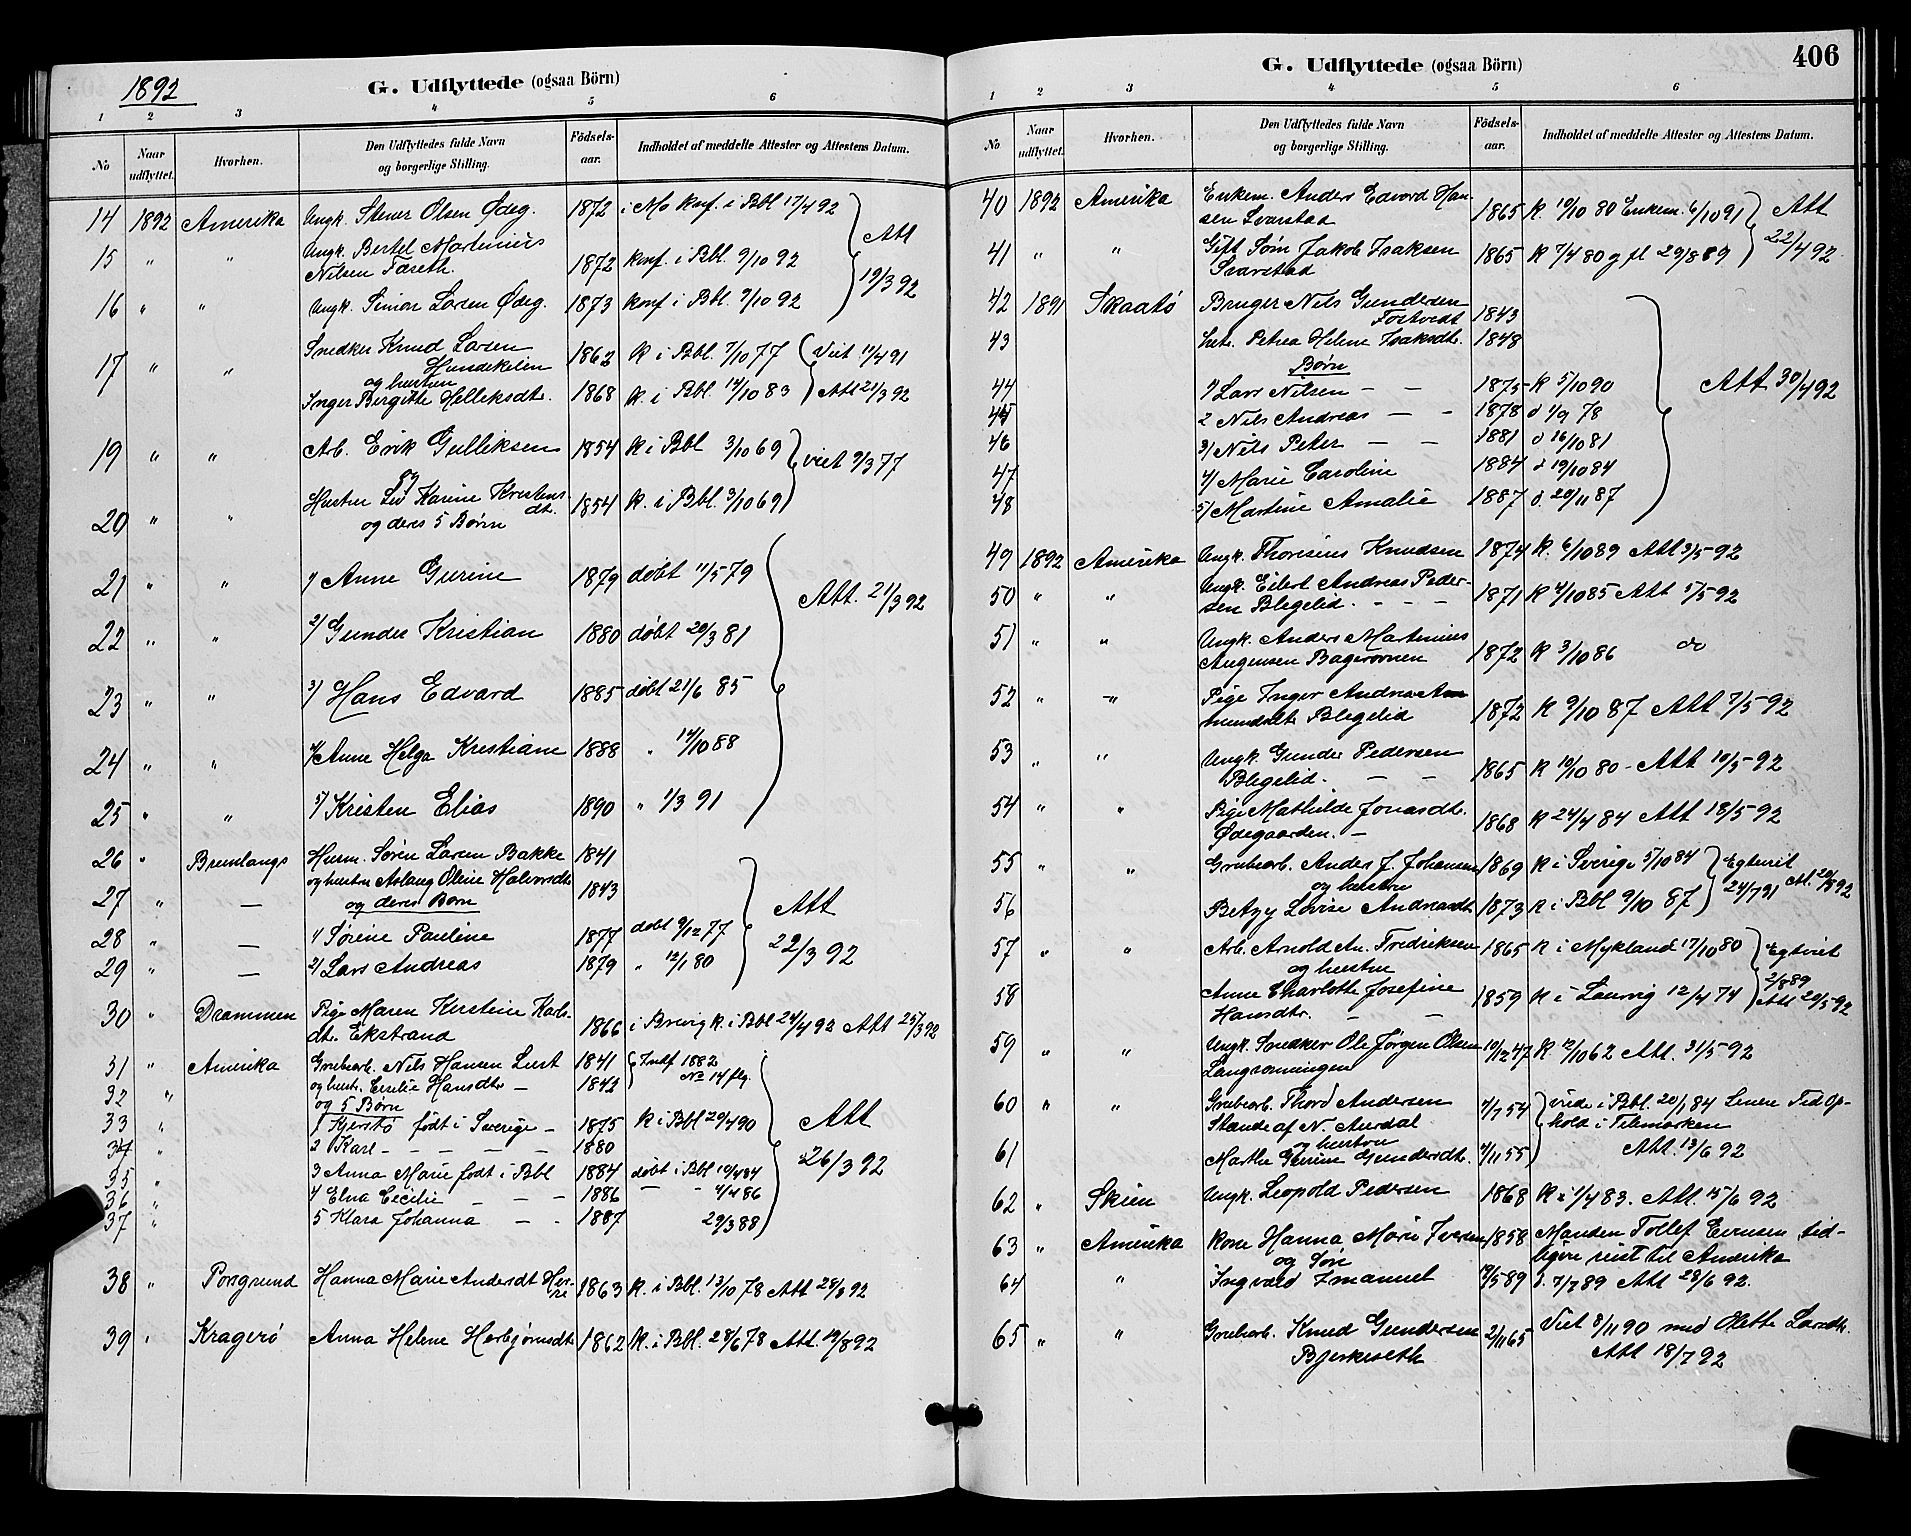 1892
G. Udflyttede (ogsaa Börn)
1 2 3 4 5 6
No
Naar udflyttet.
Hvorhen.
Den Udflyttedes fulde Navn og borgerlige Stilling.
Födsels-aar.
Indholdet af meddelte Attester og Attestens Datum.
14 1892 Amerika Ungk. Stener Olsen Ødeg. 1872 i Mo konf. i Bbl 17/4 92
15 " " Ungk. Bertel Martinius
Nilsen 1872 konf. i Bbl. 9/10 92
Att 19/3 92
16 " " Ungk. Simon Larsen Ødeg. 1873 konf i Bbl. 9/10 92
17 " " Snedker Knud Larsen 1862 k i Bbl. 7/10 77 Viet 11/4 91
og hustru
Inger Bergitte Helleksdt. 1868 k. i Bbl. 14/10 83 Att 21/3 92
19 " " Arb. Erik Gulliksen 1854 k i Bbl 3/10 69 viet 9/3 77
og
20 " " Hustru Karine Kristensdt. 1854 k. i Bbl. 3/10 69
og deres 5 Børn
21 " " 1/ Anne Gurine 1879 døbt 11/5 79
Att. 21/3 92
22 " " 2/ Gunder Kristian 1880 døbt 20/3 81
23 " " 3/ Hans Edvard 1885 døbt 21/6 85
24 " " 4/ Anne Helga Kristiane 1888 " 14/10 88
25 " " 5/ Kristen Elias 1890 " 1/3 91
26 " Brunlangs Husm. Søren Larsen Bakke 1841
27 " — og hustru Aslaug Oline Halvorsdtr. 1843
og deres Børn
Att 22/3 92
28 " — 1/ Sørine Pauline 1877 døbt 9/12 77
29 " — 2/ Lars Andreas 1879 " 12/1 80
30 " Drammen Pige Maren Kirstine Karls-
dtr. Ekstrand 1866 i Brevig k. i Bbl 24/4 92 Att 25/3 92
31 " Amerika Grubearb. Nils Hansen 1841 Indf 1882
32 " og hustr. Hansdtr — 1842 No 14 flg.
og 5 Børn
33 " 1 født i Sverige — 1875 k i Bbl 20/4 90
Att 26/3 92
34 " 2 Karl — — — 1880
35 " 3 Anna Marie født i Bbl 1884 døbt i Bbl 10/4 84
36 " 4 Elna Cecilie — — 1886 — 4/4 86
37 " 5 Klara Johanna — — 1887 29/3 88
38 " Porsgrund Hanna Marie Andersdt 1863 k. i Bbl. 13/10 78 Att 28/3 92
39 " Kragerö Anna Helene Herbjørnsdt 1862 k. i Bbl. 28/6 78 Att. 19/8 92
G. Udflyttede (ogsaa Börn)
406
1 2 3 4 5 6
No
Naar udflyttet.
Hvorhen.
Den Udflyttedes fulde Navn og borgerlige Stilling.
Födsels-aar.
Indholdet af meddelte Attester og Attestens Datum.
40 1892 Amerika Enkem. Anders Edvard Han-
sen Svarstad 1865 k. 10/10 80 Enkem. 6/10 91
Att 22/4 92
41 " " Gift Jakob Isaksen
Svarstad 1865 k 7/4 80 29/8 89
42 1891 Skaatö Bruger Nils Gundersen
1843
43 Petrea Helene Isaksdt. 1848
Børn
44 1/ Lars Nilsen — — 1875 k 5/10 90
Att 30/4 92
45 2 Nils Andreas — — 1878 d 1/9 78
46 3/ Nils Peter — — 1881 d 16/10 81
47 4/ Marie Caroline 1884 d 19/10 84
48 5/ Martine Amalie 1887 d. 20/11 87
49 1892 Amerika Ungk. Thorsius Knudsen 1874 k. 6/10 89 Att 3/5 92
50 " " Ungk. Eilert Andreas Peder-
sen Blegelid. — — — 1871 k 4/10 85 Att 5/5 92
51 " " Ungk. Anders Martinius
1872 k 3/10 86 do
52 " " Pige Inger Andrea
Blegelid 1872 k 9/10 87 Att 7/5 92
53 " " Ungk. Gunder Pedersen
Blegelid. — — 1865 k 10/10 80 - Att 10/5 92
54 " " Pige Mathilde Jonasdt.
Ødegaarden. — 1868 k 24/4 84 Att 18/5 92
55 " " Grubearb. Anders J. Johansen 1869 k i Sverige 5/10 84
og hustru
Egteviet 24/7 91 Att. 20/5 92
56 Betzy Lovise Andreasdt. 1873 k i Bbl 9/10 87
57 " " Arb. Arnold An. Fredriksen 1865 k i Mykland 17/10 80 Egtviet
og hustru 2/8 89
58 Anne Charlotte Josefine
Hansdtr. — — 1859 k i Laurvig 12/4 74 Att 20/5 92
59 " " Ungk. Snedker Ole Jørgen Olsen 10/12 47 k 12/10 62 Att. 31/5 92
60 " " Grubearb. Thord Andersen
af N. Aurdal 4/7 54 viede i Bbl. 20/1 84 Senere Tid Op-
hold i Telemarken
og hustru
61 Marthe Gurine Gundersdt. 4/11 55 Att. 13/6 92
62 " Skien Ungk. Leopold Pedersen 1868 k i 1/4 83. Att 15/6 92
63 " Amerika Kone Hanna Marie Iversen 1858 Manden Tollef Evensen tid-
og Søn ligere reist til Amerika
64 " Ingvald Emanuel 19/5 89 d. 7/7 89 Att 28/6 92.
65 " " Grubearb. Knud Gundersen 2/11 65 Viet 8/11 90 med Olette Larsdt.
Bjerkeseth Att 18/7 92